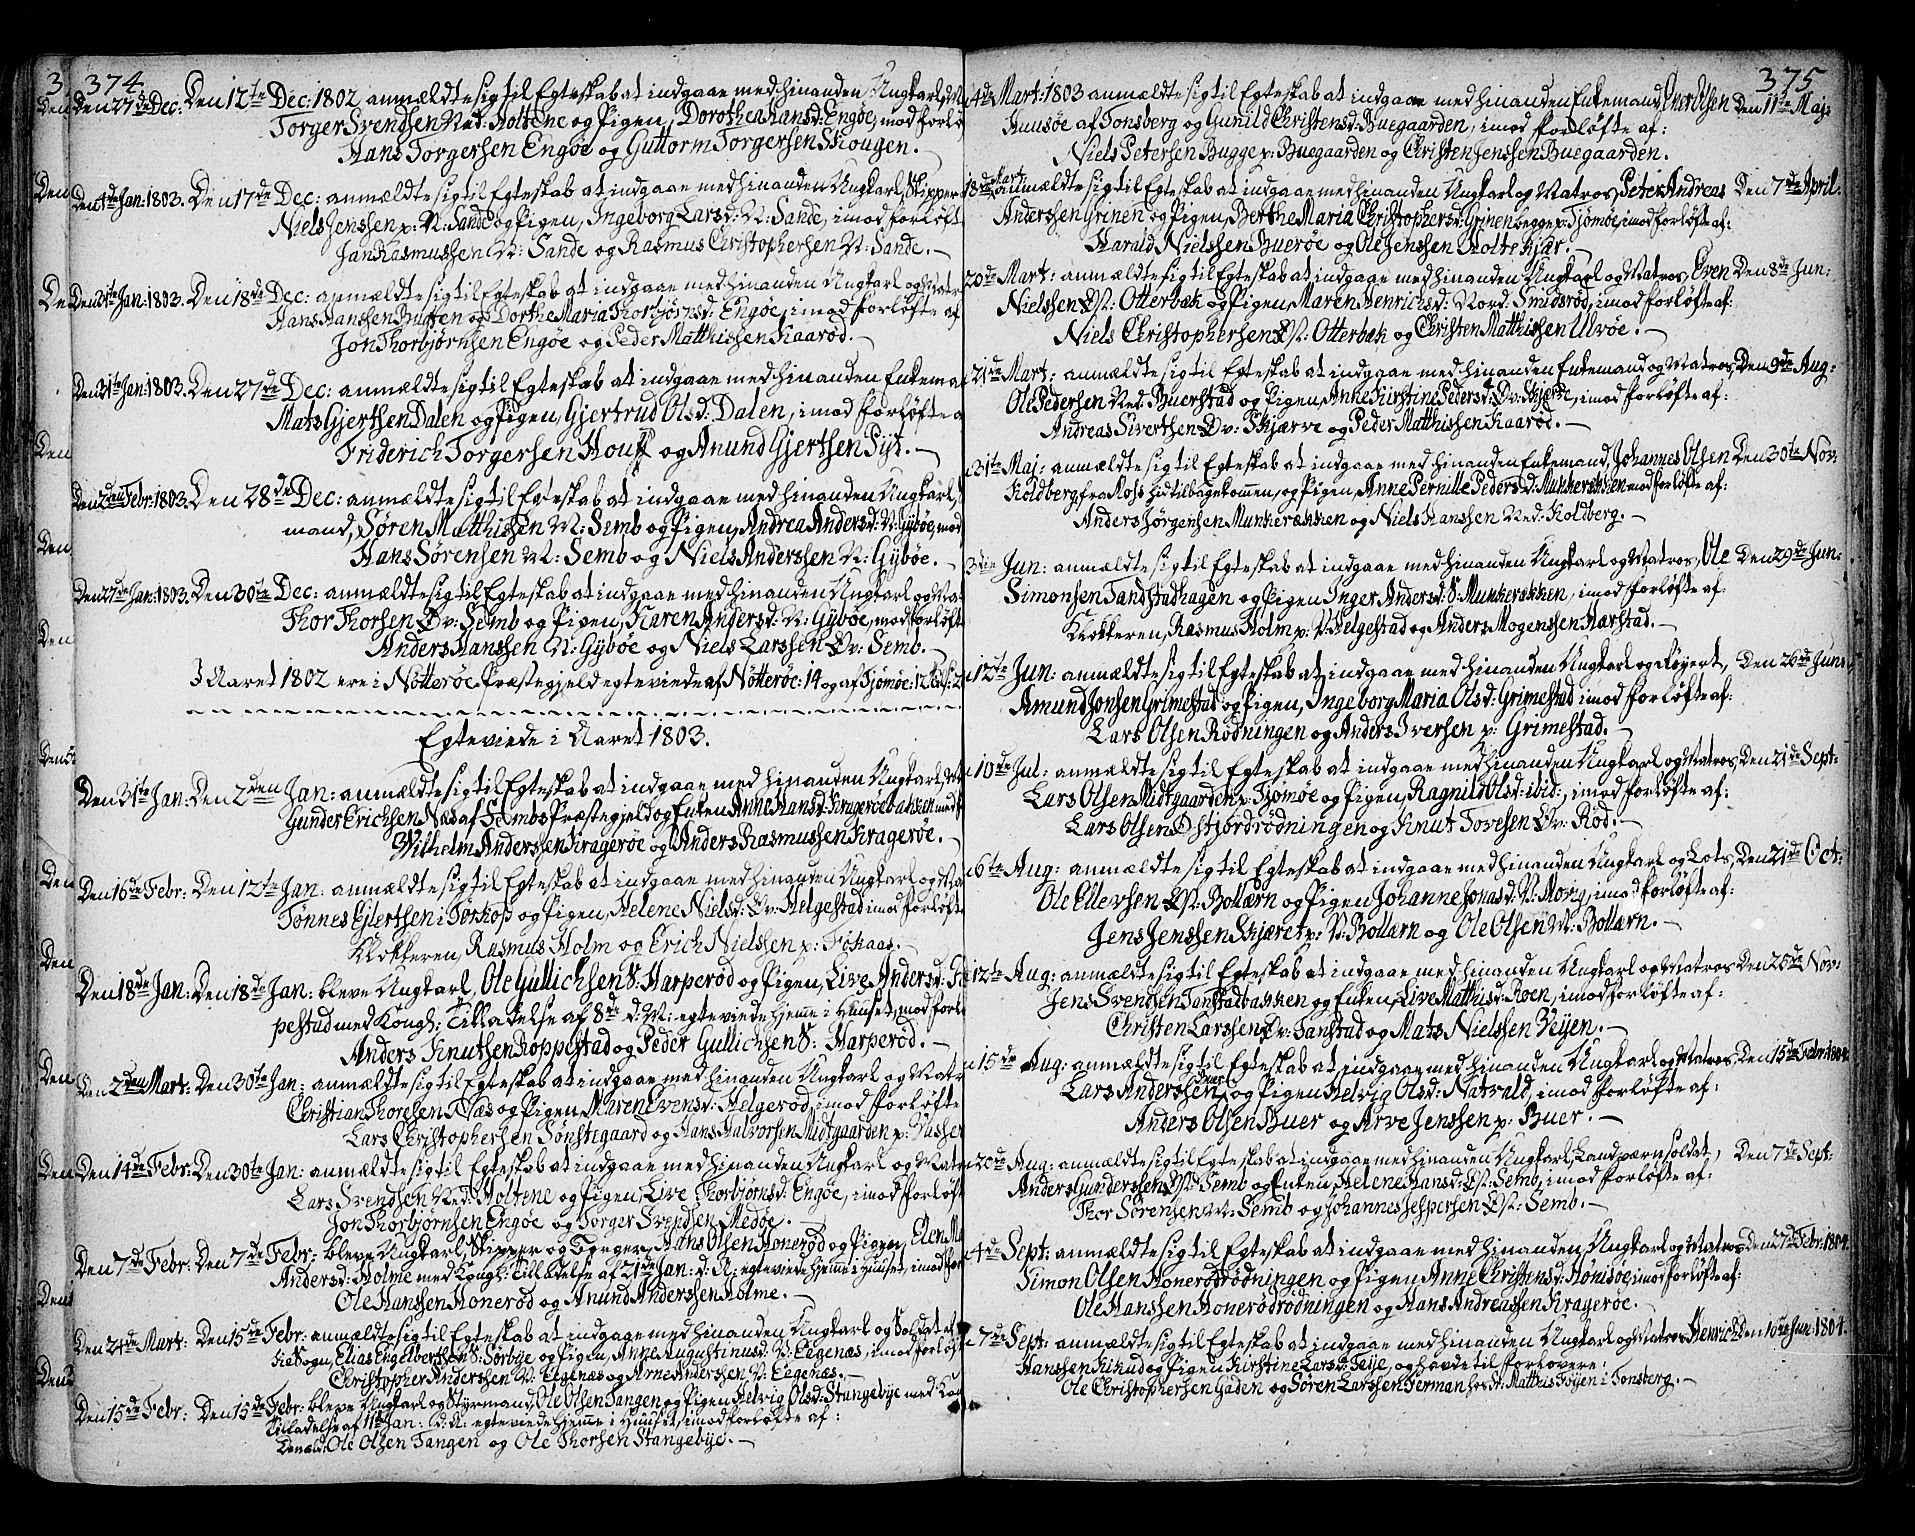 374.
Den 27de Dec: Den 12te Dec: 1802 anmældte sig til Egteskab at indgaae med hinanden Ungkarl,
Torger Svendsen Ned: Holtene og Pigen, Dorothea Hansd: Engøe, mod forlø
Hans Torgersen Engøe og Guttorm Torgersen Skougen. —
Den 1de Jan: 1803. Den 17de Dec: anmældte sig til Egteskab at indgaae med hinanden Ungkarl, Skipper
Niels Jenssen p: N: Sande og Pigen, Ingeborg Larsd: N: Sande, imod forløft
Jan Rasmussen N: Sande og Rasmus Christophersen N: Sande. —
Den 31te Jan: 1803. Den 18de Dec: anmældte sig til Egteskab at indgaae med hinanden Ungkarl og Matr
Hans Hanssen Buften og Dorthe Maria Thorbjørnsd: Engøe, imod forløfte af
Jon Thorbjørnsen Engøe og Peder Matthissen Kaarød. —
Den 31te Jan: 1803. Den 27de Dec: anmældte sig til Egteskab at indgaae med hinanden Enkema
Mats Gjertsen Dalen og Pigen, Gjertrud Olsd: Dalen, imod forløfte a
Friderich Torgersen Houg og Anund Gjertsen Pyt. —
Den 2den Febr: 1803. Den 28de Dec: anmældte sig til Egteskab at indgaae med hinanden Ungkarl,
mand, Søren Matthissen N: Semb og Pigen, Andrea Andersd: N: Gybøe, mod
Hans Sørensen N: Semb og Niels Anderssen N: Gybøe. —
Den 27de Jan: 1803. Den 30te Dec: anmældte sig til Egteskab at indgaae med hinanden Ungkarl og Ma
Thor Thorsen Øv: Semb og Pigen, Karen Andersd: N: Gybøe, mod forløft
Anders Hanssen N: Gybøe og Niels Larssen Øv: Semb. —
I Aaret 1802 ere i Nøtterøe Præstegjeld egteviede af Nøtterøe: 14 og af Tjømøe: 12
Egteviede i Aaret 1803.
Den 31te Jan: Den 2den Jan: anmældte sig til Egteskab at indgaae med hinanden Ungkarl,
Gunder Erichsen Næs af Sembs Præstegjeld og Enken Anne Hansd: Kragerøebakken mod
Wilhelm Anderssen Kragerøe og Anders Rasmussen Kragerøe. —
Den 16de Febr: Den 12te Jan: anmældte sig til Egteskab at indgaae med hinanden Ungkarl og Ma
Tønnes Ejlertsen i Tørkop og Pigen, Helene Nielsd: Øv: Helgestad imod forløft
Klokkeren, Rasmus Holm og Erich Nielssen p: Føhaas. —
Den 18de Jan: Den 18de Jan: bleve Ungkarl, Ole Gullichsen S: Harperød og Pigen, Live Andersd:
pestad med Kongl: Tilladelse af 8de d: M: egteviede hjemme i Huuset, mod forl
Anders Knutsen Roppestad og Peder Gullichsen S: Harperød. —
Den 2den Mart: Den 30te Jan: anmældte sig til Egteskab at indgaae med hinanden Ungkarl og Matr
Christian Thoresen Næs og Pigen, Maren Evensd: Helgerød, imod forløfte
Lars Christophersen Sønstegaard og Hans Halvorsen Midtgaarden p: Vasser
Den 14de Febr: Den 30te Jan: anmældte sig til Egteskab at indgaae med hinanden Ungkarl og Matr
Lars Svendsen Ned: Holtene og Pigen, Live Thorbjørnsd: Engøe, imod forløft
Jon Thorbjørnsen Engøe og Torger Svendsen Medøe. —
Den 7de Febr: Den 7de Febr: bleve Ungkarl, Skipper og Borger, Hans Olsen Honerød og Pigen, Elen
Andersd: Holme med Kongl: Tilladelse af 21de Jan: d: A: egteviede hjemme i Huuset, imod for
Ole Hanssen Honerød og Anund Anderssen Holme. —
Den 24de Mart: Den 15de Febr: anmældte sig til Egteskab at indgaae med hinanden Ungkarl og Soldat af
ke Sogn, Elias Engelbertsen S: Sørbye og Pigen, Anne Augustinusd: N: Eegenæs, imod forløft
Christopher Anderssen N: Eegenæs og Arne Anderssen N: Eegenæs. —
Den 15de Febr: Den 15de Febr: bleve Ungkarl og Styrmand, Ole Olsen Tangen og Pigen Helvig Olsd: Stangebye med Ko
Tilladelse af 11te Jan: d: A: egteviede hjemme i Huuset, imod forløfte af:
Ole Olsen Tangen og Ole Thorsen Stangebye. —
375
4de Mart: 1803 anmældte sig til Egteskab at indgaae med hinanden Enkemand, Iver Olsen Den 11te Maj:
Huusøe af Tonsberg og Gunild Christensd: Buegaarden, imod forløfte af:
Niels Petersen Bugge p: Buegaarden og Christen Jenssen Buegaarden. —
18de Mart: anmældte sig til Egteskab at indgaae med hinanden Ungkarl og Matros, Peter Andreas Den 7de April.
Anderssen Grinen og Pigen, Berthe Maria Christophersd: Grinen begge p: Tjømøe, imod forløfte af:
Harald Nielssen Buerøe og Ole Jenssen Holtekjær. —
20de Mart: anmældte sig til Egteskab at indgaae med hinanden Ungkarl og Matros, Even Den 8de Jun:
Nielssen Øst: Otterbæk og Pigen, Maren Henrichsd: Nord: Smidsrød, imod forløfte af:
Niels Christophersen Øst: Otterbæk og Christen Matthissen Ulvøe. —
21de Mart: anmældte sig til Egteskab at indgaae med hinanden Enkemand og Matros, Den 9de Aug:
Ole Pedersen Ned: Buerstad og Pigen, Anne Kirstine Pedersd: Øv: Skjerve, imod forløfte af:
Andreas Sivertsen Øv: Skjærve og Peder Matthissen Kaarød. —
31te Maj: anmældte sig til Egteskab at indgaae med hinanden Enkemand, Johannes Olsen Den 30te Nov:
Koldberg, fra Kohs hidtilbagekommen, og Pigen, Anne Pernille Pedersd: Munkerækken mod forløfte af:
Anders Jørgensen Munkerækken og Niels Hanssen Ned: Koldberg. —
3die Jun: anmældte sig til Egteskab at indgaae med hinanden Ungkarl og Matros, Ole Den 29de Jun:
Simonsen Tandstadhagen og Pigen Inger Andersd: S: Munkerækken, imod forløfte af:
Klokkeren, Rasmus Holm p: V: Helgestad og Anders Mogenssen Harstad. —
12te Jun: anmældte sig til Egteskab at indgaae med hinanden Ungkarl og Røgert, Den 26de Jun:
Amund Jonsen Grimestad og Pigen, Ingeborg Maria Olsd: Grimestad imod forløfte af:
Lars Olsen Rødningen og Anders Iversen p: Grimestad.
10de Jul: anmældte sig til Egteskab at indgaae med hinanden Ungkarl og Matros, Den 21de Sept:
Lars Olsen Midtgaarden p: Tjømøe og Pigen, Ragnild Olsd: ibid:, imod forløfte af:
Lars Olsen Østjordrødningen og Knut Tovesen Øv: Rød. —
6te Aug: anmældte sig til Egteskab at indgaae med hinanden Ungkarl og Lots, Den 21de Oct:
Ole Ellevsen Øst: Bollærn og Pigen Johanne Jonasd: V: Morig, imod forløfte af:
Jens Jenssen Skjæret p: V: Bollærn og Ole Olsen N: Bollærn. —
12te Aug: anmældte sig til Egteskab at indgaae med hinanden Ungkarl og Matros Den 25de Nov:
Jens Svendsen Tanstadbakken og Enken, Live Matthisd: Roen, imod forløfte af:
Christen Larssen Øv: Tanstad og Mats Nielssen Vejen. —
15de Aug: anmældte sig til Egteskab at indgaae med hinanden Ungkarl og Matros Den 15de Febr: 1804
Lars Anderssen Buer og Pigen Helvig Olsd: Natvald, imod forløfte af:
Anders Olsen Buer og Arve Jenssen p: Buer. —
20de Aug: anmældte sig til Egteskab at indgaae med hinanden Ungkarl, Landværnsoldat, Den 7de Sept:
Anders Gunderssen Øst: Semb og Enken, Helene Hansd: Øst: Semb, imod forløfte af:
Thor Sørensen N: Semb og Johannes Jespersen Øst: Semb. —
4de Sept: anmældte sig til Egteskab at indgaae med hinanden Ungkarl og Matros Den 27de Febr: 1804.
Simon Olsen Honerødrødningen og Pigen Anne Christensd: Hønisøe, imod forløfte af:
Ole Hanssen Honerødrødningen og Hans Andreassen Kragerøe.
7de Sept: anmældte sig til Egteskab at indgaae med hinanden Ungkarl og Matros Henrich Den 10de Jan: 1804.
Hanssen Kikud og Pigen Kirstine Larsd: Teje, og havde til forlovere:
Ole Christophersen Gaden og Søren Larssen Ferman hos Hr. Matthis Føyen i Tonsberg. —